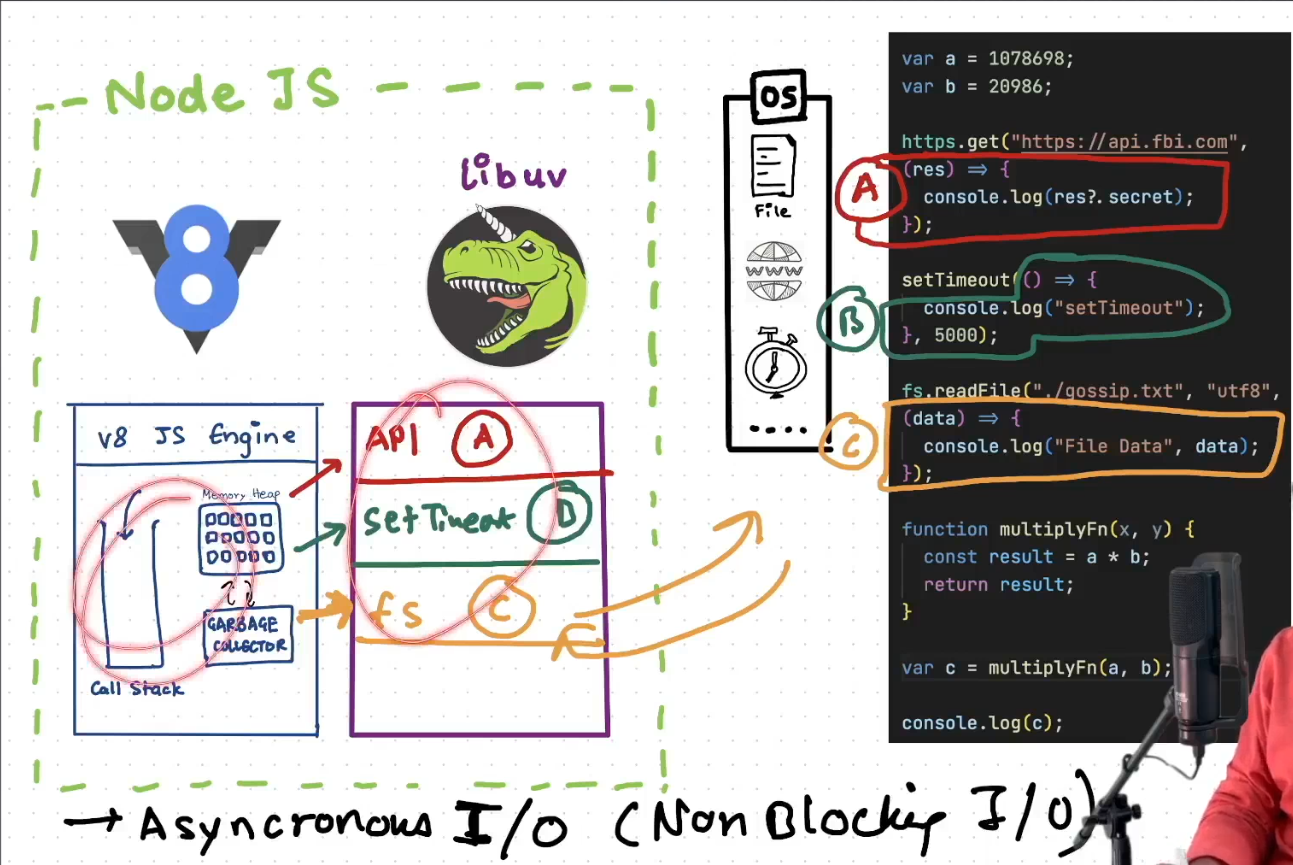 Node JS
libuv
V8
V8 JS Engine
Memory Heap
GARBAGE
COLLECTOR
Call Stack
API A
setTimeout B
fs C
OS
File
WWW
A
B
C
var a = 1078698;
var b = 20986;
https.get("https://api.fbi.com",
(res) ⇒ {
console.log(res?.secret);
});
setTimeout(() ⇒ {
console.log("setTimeout");
}, 5000);
fs.readFile("./gossip.txt", "utf8",
(data) ⇒ {
console.log("File Data", data);
});
function multiplyFn(x, y) {
const result = a * b;
return result;
}
var c = multiplyFn(a, b);
console.log(c);
→ Asyncronous I/O (Non Blocking I/O)